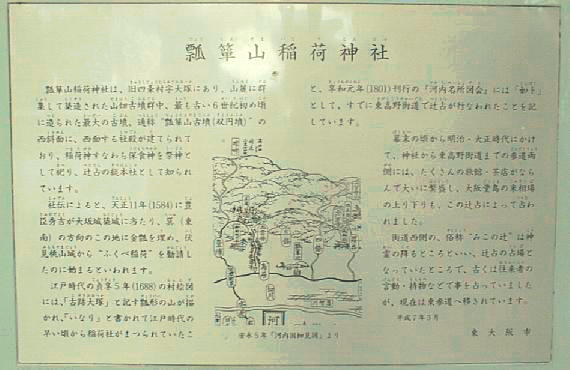 瓢箪山稲荷神社
瓢箪山稲荷神社は、旧四条村字大塚にあり、山麓に群
集して築造された山畑古墳群中、最も古い6世紀初の頃
に造られた最大の古墳、通称“瓢箪山古墳(双円墳)”の
西斜面に、西面する社殿が建てられて
おり、稲荷神すなわち保食神を祭神と
して祀り、辻占の総本社として知られ
ています。
社伝によると、天正11年(1584)に豊
臣秀吉が大坂城築城に当たり、巽(東
南)の方向のこの地に金瓢を埋め、伏
見桃山城から“ふくべ稲荷”を勧請し
たのに始まるといわれます。
江戸時代の貞享5年(1688)の村絵図
には、「古跡大塚」と記す瓢形の山が描
かれ、「いなり」と書かれて江戸時代の
早い頃から稲荷社がまつられていたこ
と、享和元年(1801)刊行の『河内名所図会』には「如下」
として、すでに東高野街道で辻占が行なわれたことを記
しています。
幕末の頃から明治・大正時代にかけ
て、神社から東高野街道までの参道両
側には、たくさんの旅館・茶店がなら
んで大いに繁盛し、大阪堂島の米相場
の上り下りも、この辻占によって占わ
れました。
街道西側の、俗称“みこの辻”は神
霊の降るところといい、辻占の占場と
なっていたところで、古くは往来者の
言動・持物などで事を占っていました
が、現在は東参道へ移されています。
平成7年3月
東大阪市
安永5年「河内国細見図」より